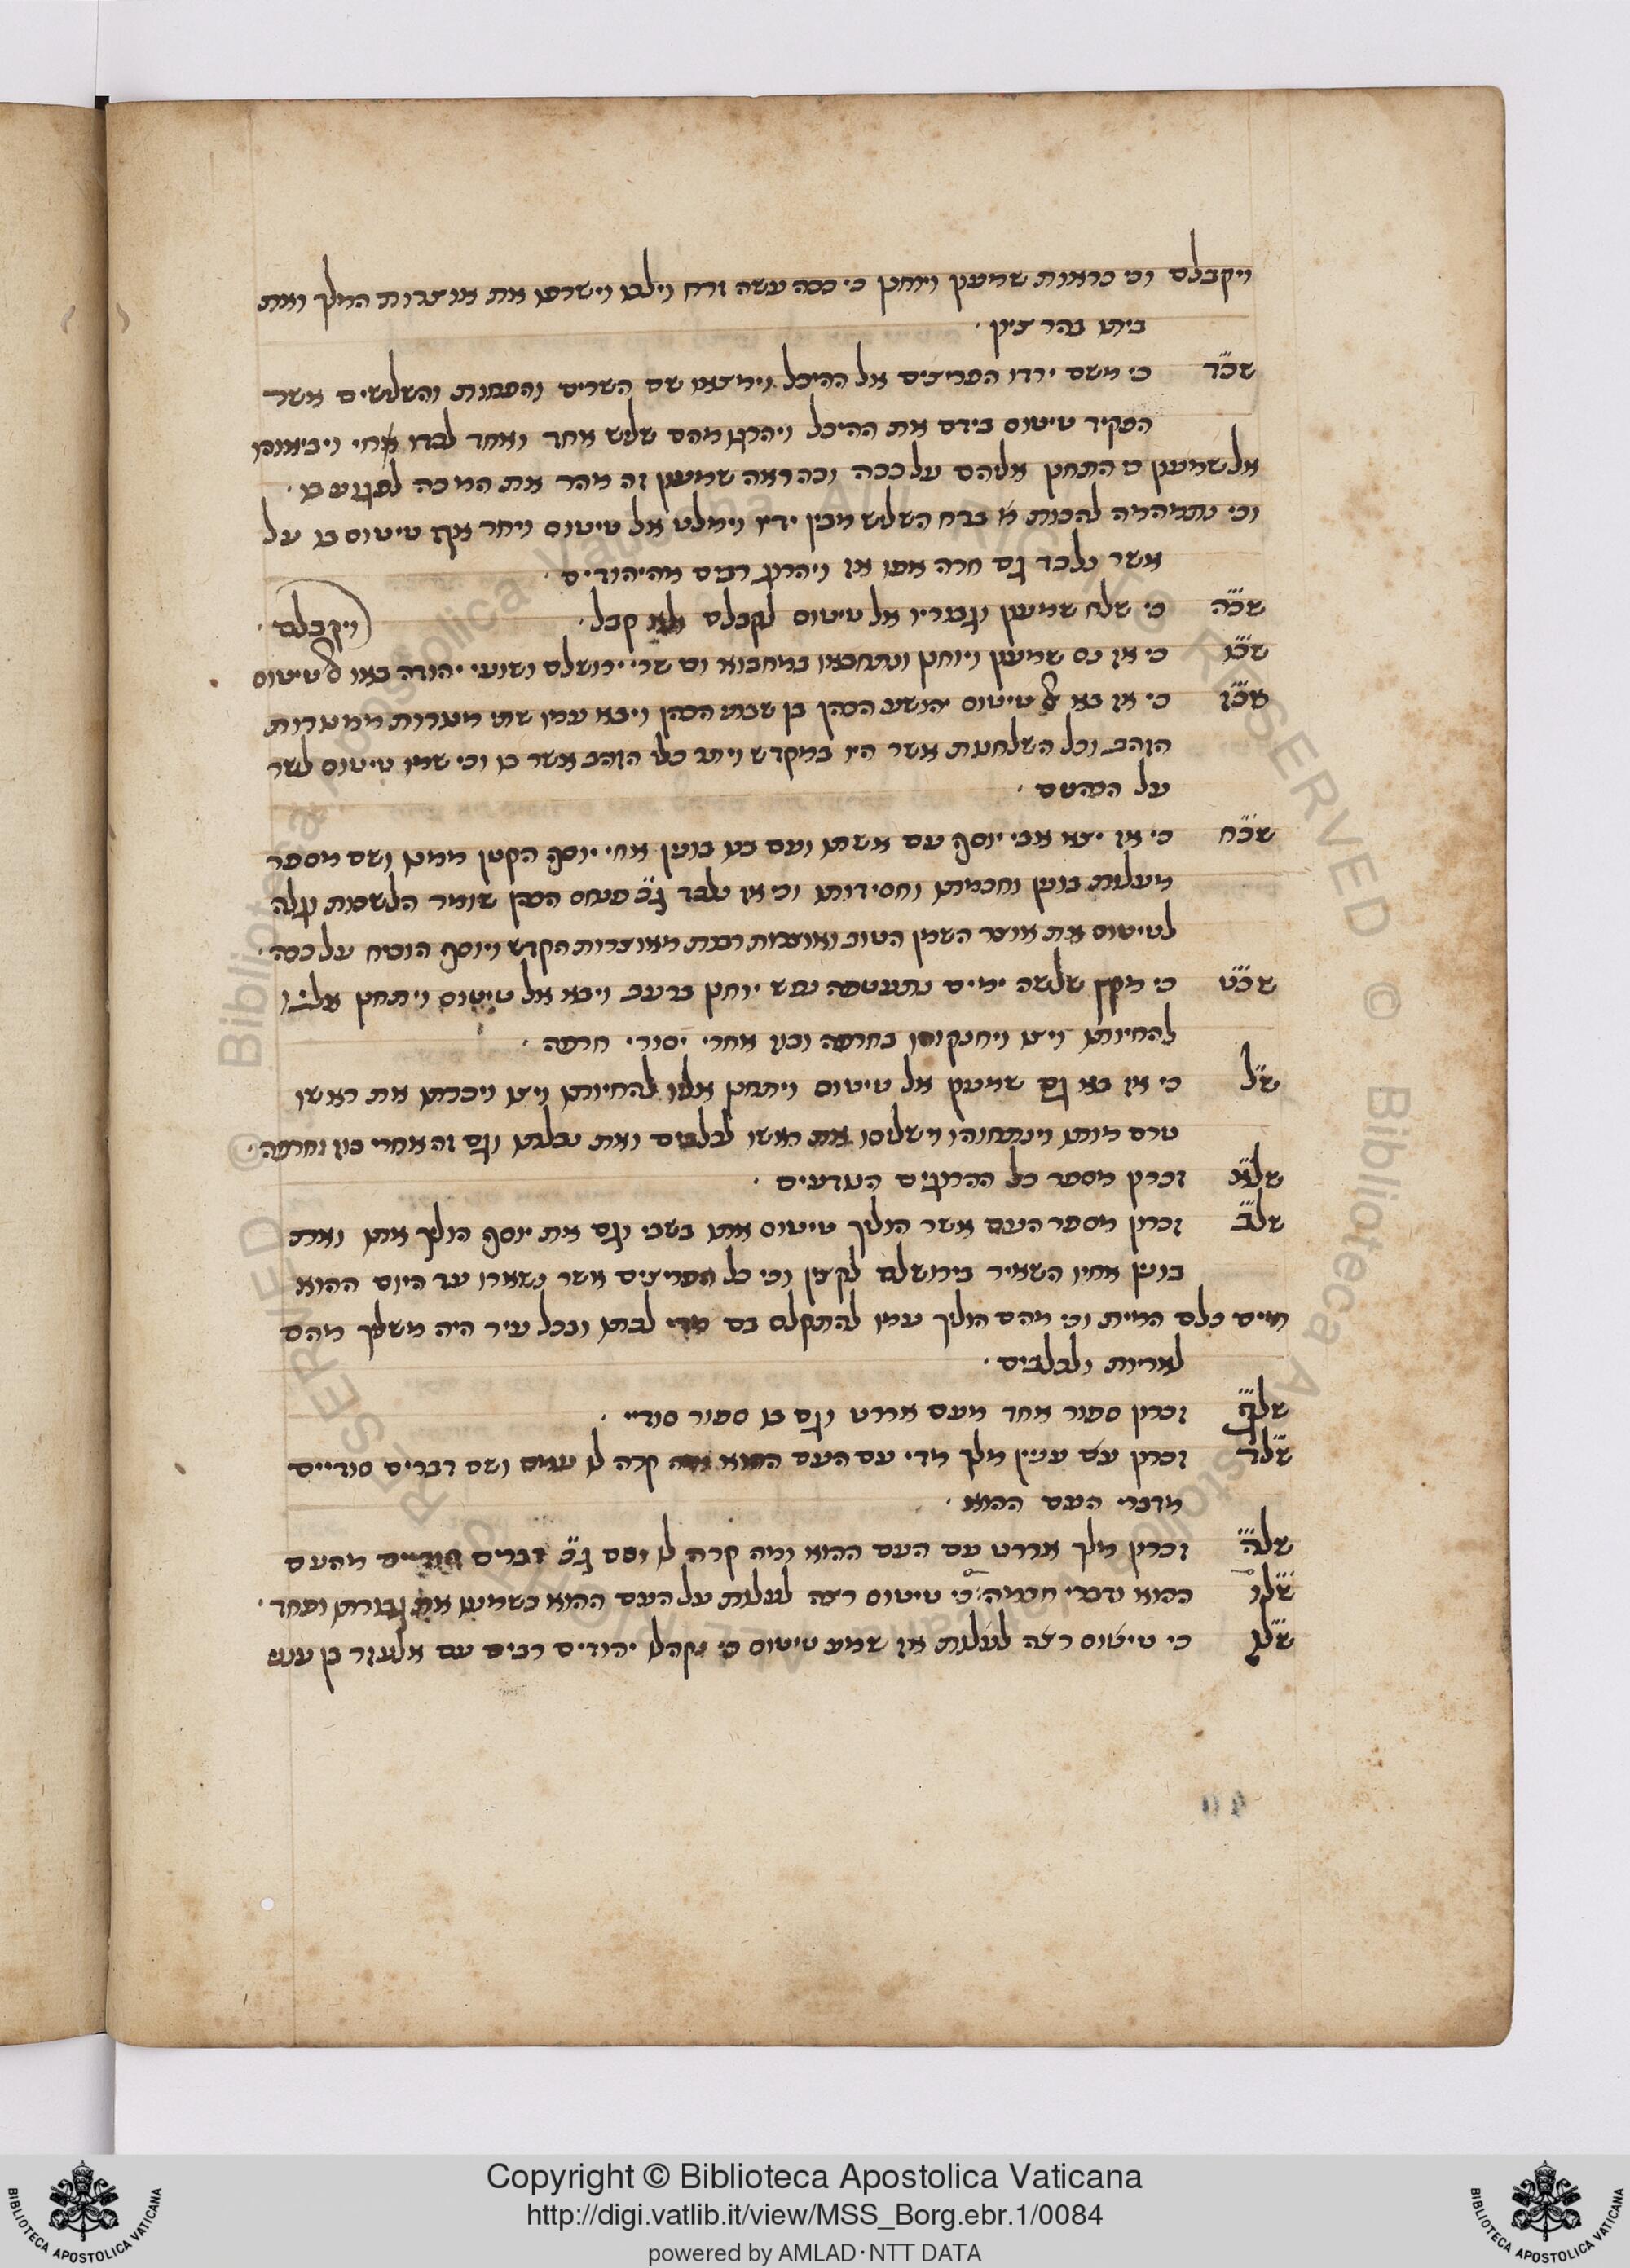 ויקבלם וכי כראות שמעון ויוחנן כי ככה עשה זרח וילכו וישרפו את אוצרות המלך ואת
ביתו בהר ציון ·
שכד כי משם ירדו הפריצים אל ההיכל וימצאו שם השרים והפחות והשלישים אשר
הפקיד טיטוס בידם את ההיכל ויהרגו מהם שליש אחד ואחד לכדו חי ויביאוהו
אל שמעון התחנן אליהם על ככה וכהראה שמעון זה מהר את המכה לפגוע בו ·
וכי נתמהמה להכות ברח השליש מבין ידיו וימלט אל טיטוס ויחר אף טיטוס בו על
אשר נלכד גם חרה אפו אז ויהרוג רבים מהיהודים ·
שכה כי שלח שמעון וגבוריו אל טיטוס לקבלם ולא קבל · ויקבלם ·
שכו כי אז נס שמעון ויוחנן ונתחבאו במחבוא וס שרי ירושלם ושועי יהודה באו טיטוס
שכז כי אז בא טיטוס יהושע הכהן בן שבתי הכהן ויבא עמו שתי מנורות ממנורות
הזהב וכל השלחנות אשר היו במקדש ויתר כלי הזהב אשר בו וכי שמו טיטוס לשר
על הכהנים ·
שכח כי אז יצא אבי יוסף עם אשתו ועם בנו בוניו אחי יוסף הקטן ממנו ושם מספר
מעלות בוניו וחכמתו וחסידותו וכי אז נלכד ג״כ פנחס הכהן שומר הלשכות וגלה
לטיטוס את אוצר השמן הטוב ואוצרות רבות מאוצרות הקדש ויוסף הוכיח על ככה ·
שכט כי מקץ שלשה ימים יוחנן ברעב ויבא אל טיטוס ויתחנן אליו
להחיותו ויצו בחרפה אחרי יסורי חרפה ·
של כי אז בא גם שמעון אל טיטוס ויתחנן אליו להחיותו ויצו ויכרתו את ראשו
טרם מותו וינתחוהו וישליכו את ראשו לכלבים ואת נבלתו וגם זה אחרי בוז וחרפה ·
שלא זכרון מספר כל ההרוגים הנודעים ·
שלב זכרון מספר העם אשר הוליך טיטוס אתו בשבי וגם את יוסף הוליך אתו ואת
בוניו אחיו השאיר בירושלם לקצין וכי כל הפריצים אשר נשארו עד היום ההוא
חיים כלם המית וכי מהם הוליך עמו להתקלס בם מדי לכתו ובכל עיר היה משליך מהם
לאריות ולכלבים ·
שלג זכרון ספור אחד מעם אררט וגם בו ספור סודיי ·
שלד זכרון עם ענין מלך מדי עם העם ההוא קרה לו עמם ושם דברים סודיים
מדברי העם ההוא ·
שלה זכרון מלך אררט עם העם ההוא ומה קרה לו ושם ג״כ דברים סודיים מהעם
שלו ההוא ודברי חכמה כי טיטוס רצה לעלות על העם ההוא כשמעו את גבורתו ופחד ·
שלז כי טיטוס רצה לעלות אז שמע טיטוס כי נקהלו יהודים רבים עם אלעזר בן ענני
Copyright © Biblioteca Apostolica Vaticana
http://digi.vatlib.it/view/MSS_Borg.ebr.1/0084
powered by AMLAD·NTT DATA